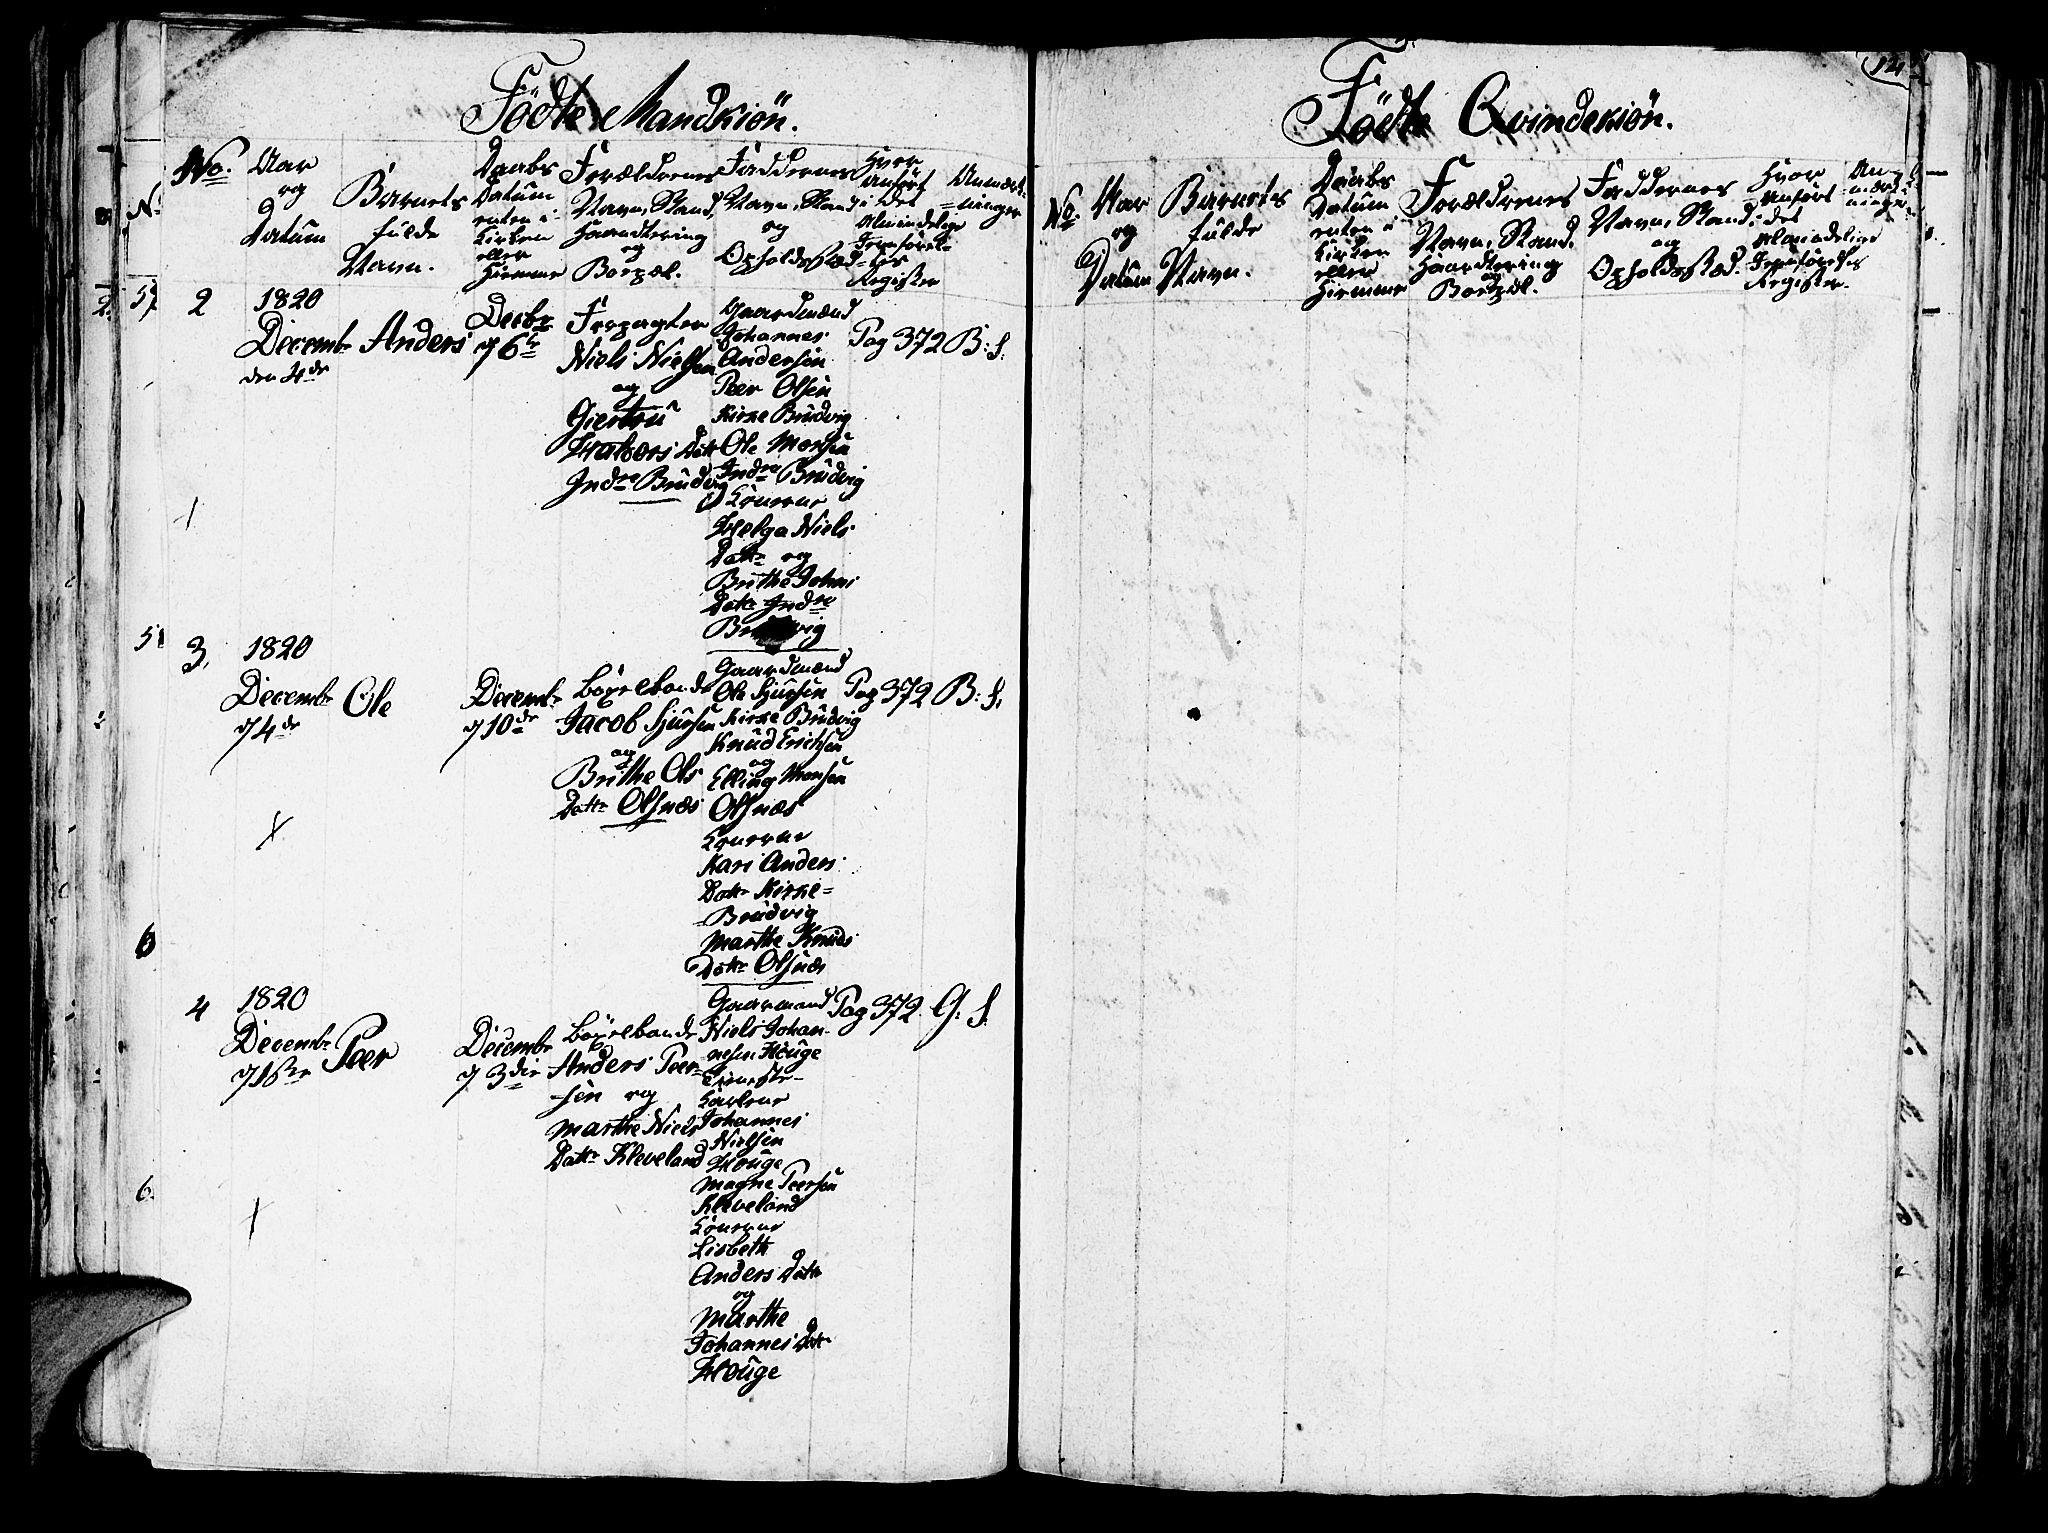 Födte Mandkiön.
No. Aar og Datum
Barnets fulde Navn.
Daabs Datum enten i Kirken eller Hiemme
Forældrenes Navn, Stand, Haandtering og Boepæl.
Faddernes Navn, Stand og Opholdsstæd
Hvor anfört i det Almindelige Jevnförel-
ses Register
Anmærk-
ninger
2
1820
Decembr
den 4de
Anders
Decbr
Forpagter
Niels Nielsen
og
Giertru
Datr
Indre Brudvig
Gaardmænd
Johannes
Andersen
Peer Olsen
Kirke Brudvig
Ole Monsen
Indre Brudvig
Konerne
Helga Niels
Datr og
Brithe Johns
Datr Indre
Pag 372 B: S.
3.
1820
Decembr
Ole
Decembr
Jacob Sjursen
og
Brithe Ols
Datr Olsnæs
Gaardmænd
Ole Sjursen
Kirke Brudvig
Knud Erichsen
og
Elling Monsen
Olsnæs
Konerne
Kari Anders
Datr Kirke-
Brudvig
Marthe Knuds
Datr Olsnæs
Pag 372 B: S.
4
1820
Decembr
Peer
Decembr
Anders Peer-
sen og
Marthe Niels
Datr Kleveland
Niels Johan-
nesen Houge
Johannes
Nielsen
Houge
Magne Peersen
Kleveland
Konerne
Lisbeth
Anders Datr
og
Marthe
Johannes Datr
Houge
Pag 372. G: S.
Födte Qvindekiön.
No. Aar og Datum
Barnets fulde Navn.
Daabs Datum enten i Kirken eller Hiemme
Forældrenes Navn, Stand, Haandtering og Boepæl.
Faddernes Navn, Stand og Opholdsstæd.
Hvor anfört i det Almindelige Jevnförelses Register.
An-
mærk-
ninger